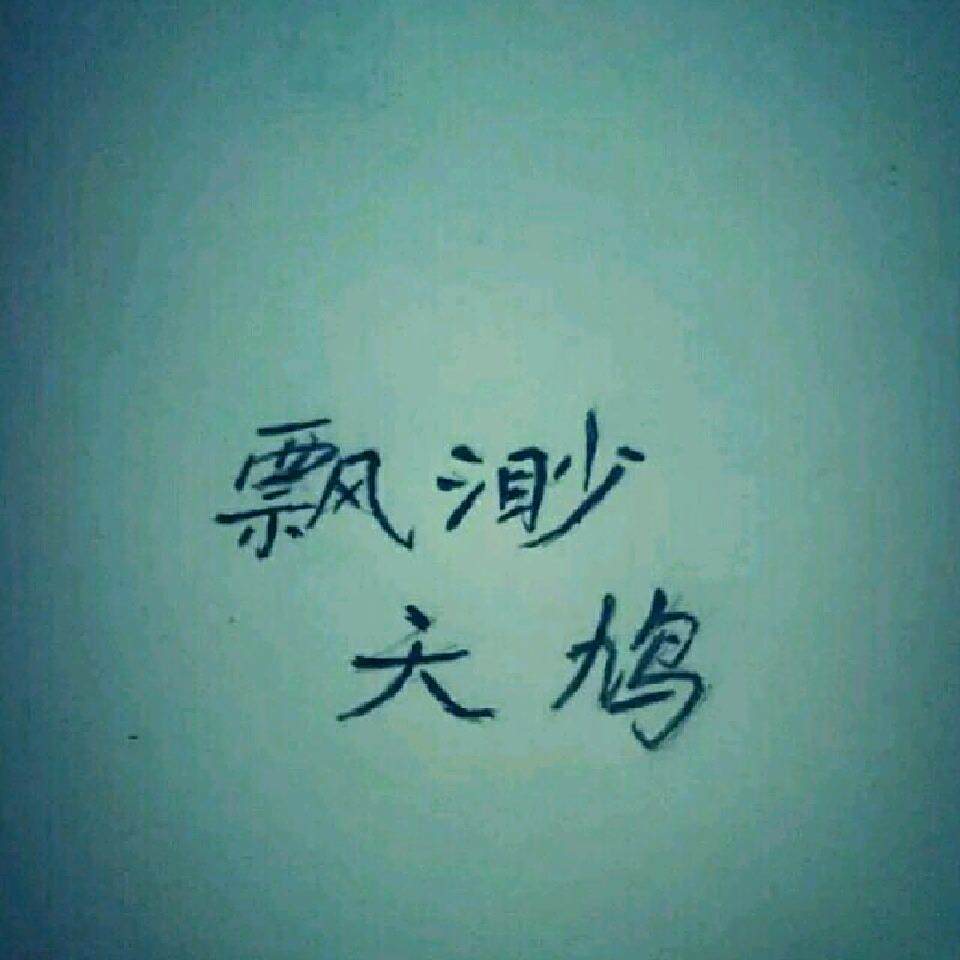 飘渺
天鸠